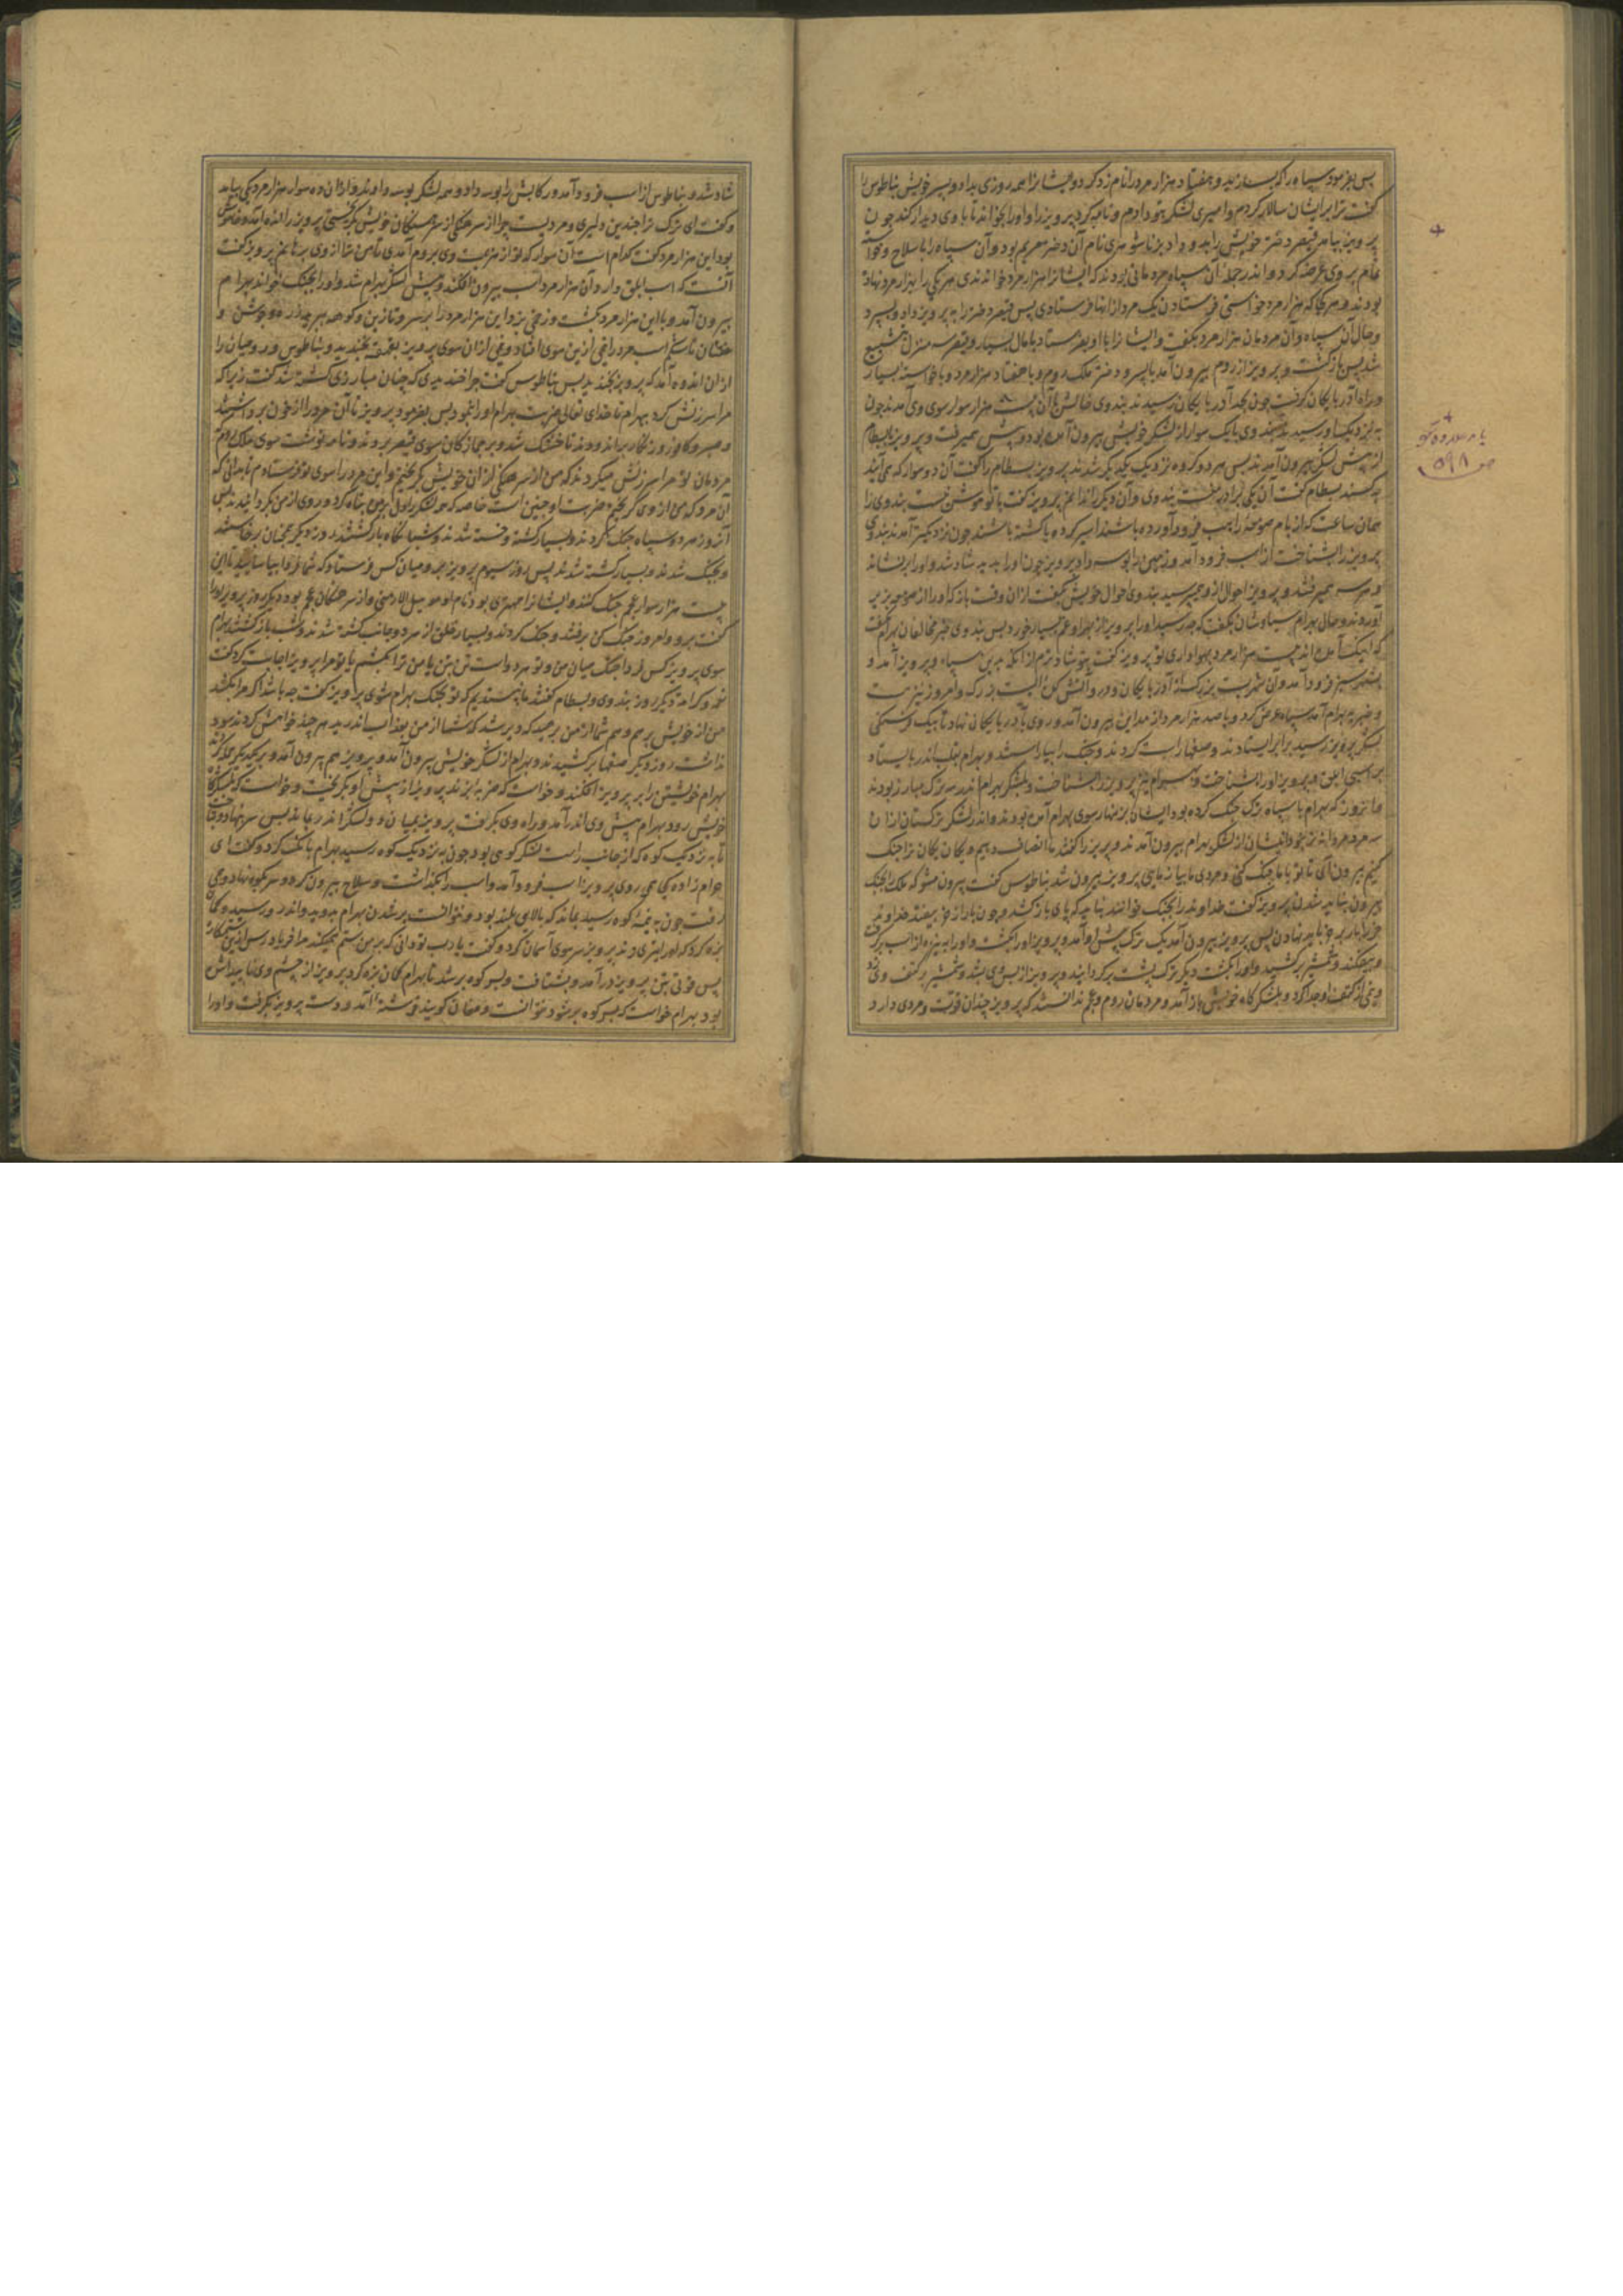 پس بفرمود سپاه را که بسازید و هفتاد هزار مرد را نام زد کرد و ایشانرا همه روزی بداد و پسر خویش بناطوس را
گفت ترا بر ایشان سالار کردم و امیری لشکر بتو دادم و نامه کرد بپرویز را و او را بخواند تا با وی دیدار کند چون
پرویز بیامد قیصر دختر خویش را بدو داد بزناشوهری نام آن دختر مریم بود و آن سپاه را با سلاح و خواسته
تمام بر وی عرضه کرد و اندر جمله آن سپاه مردمانی بودند که ایشانرا هزار مرد خواندندی هر یکی را بهزار مرد نهاده
بودند و هر کجا که هزار مرد خواستی فرستادن یک مرد از انها فرستادی پس قیصر دختر را به پرویز داد و بسپرد
و حال آن سپاه و آن مردمان هزار مرد بگفت و ایشانرا با او بفرستاد با مال بسیار و قیصر سه منزل بتشییع
شد پس بازگشت و پرویز از روم بیرون آمد با پسر و دختر ملک روم و با هفتاد هزار مرد و با خواسته بسیار
و راه آذربایکان گرفت چون بحد آذربایکان رسیدند بندوی خالش با آن بیست هزار سوار سوی وی آمدند چون
به نزدیک او رسیدند بندوی با یک سوار از لشکر خویش بیرون آمده بود و پیش همیرفت و پرویز با بسطام
از پیش لشکر بیرون آمدند پس هر دو گروه نزدیک یکدیگر شدند پرویز بسطام را گفت آن دو سوار که می آیند
که کسند بسطام گفت آن یکی برادر منست بندوی و آن دیگر را ندانم پرویز گفت با تو خوشن نیست بندوی را
همان ساعت که از بام صومعه را بحیله فرود آورده باشند اسیر کرده یا کشته باشند چون نزدیکتر آمدند بندوی
پرویز را بشناخت از اسب فرود آمد و زمین را بوسه داد پرویز چون او را بدید شاد شد و او را برنشاند
و هر سه همیرفتند و پرویز احوال از وی همی پرسید بندوی احوال خویش بگفت از ان وقت باز که او را از صومعه بزیر
آوردند و حال بهرام سیاوشان بگفت که چه رسید او را پرویز از بهر او غم بسیار خورد پس بندوی خبر مخالفان بهرام بگفت
که اینک آمده اند بیست هزار مرد بهواداری تو پرویز گفت بتو شادترم از انکه بدین سپاه و پرویز آمد و
بشهر شیز فرود آمد و آن شهریست بزرک از آذربایکان و در وی آتش کده ایست بزرک و امروز نیز هست
و خبر به بهرام آمد سپاه عرض کرد و با صد هزار مرد از مداین بیرون آمد و روی بآذربایکان نهاد تا بیک فرسنگی
لشکر پرویز رسید برابر ایستادند و صفها راست کردند و جنک را بیاراستند و بهرام بقلب اندر بایستاد
بر اسبی ابلق و پرویز او را بشناخت و بهرام نیز پرویز را بشناخت و بلشکر بهرام اندر سه ترک مبارز بودند
و انروز که بهرام با سپاه ترک جنک کرده بود ایشان بزینهار سوی بهرام آمده بودند و اندر لشکر ترکستان از ان
سه مرد مردانه تر نبود ایشان از لشکر بهرام بیرون آمدند و پرویز را گفتند ما انصاف دهیم و یکان یکان ترا جنک
کنیم بیرون آی تا تو با ما جنک کنی و مردی ما بیازمایی پرویز بیرون شد بناطوس گفت بیرون مشو که ملک را بجنک
بیرون نباید شدن پرویز گفت خداوند را بجنک خوانند نباید که پای باز کشد و چون باز از خر بیفتد خداوند
خر را بار بر خر باید نهادن پس پرویز بیرون آمد یک ترک پیش او آمد و پرویز او را بکشت و او را به نیزه از اسب برگرفت
و بیفکند و شمشیر برکشید و او را بکشت دیگر ترک پشت برگردانید و پرویز از پس وی بشد و شمشیر بر کتف وی زد
و نیمی از کتف او جدا کرد و بلشکرگاه خویش باز آمد و مردمان روم و عجم ندانستند که پرویز چندان قوت و مردی دارد
ص ۵۹۸
شاد شد و بناطوس از اسب فرود آمد و رکابش را بوسه داد و همه لشکر بوسه دادند و از ان ده سوار هزار مرد یکی بیامد
و گفت ای ترک ترا چندین دلیری و مردیست چرا از سرهنگی از سرهنگان خویش بگریختی پرویز را انده آمد و خاموش
بود این هزار مرد گفت کدام است آن سوار که تو از هزیمت وی بروم آمدی تا من ترا از وی برهانم پرویز گفت
آنست که اسب ابلق دارد آن هزار مرد اسب بیرون افکند و پیش لشکر بهرام شد و او را بجنک خواند بهرام
بیرون آمد و با این هزار مرد بگشت و زخمی بزد این هزار مرد را بر سر و تا زین و کوهه ببرید زره و جوشن و
خفتان تا شکم اسب مرد را نیمی ازین سوی افتاد و نیمی از ان سوی پرویز بقهقهه بخندید و بناطوس و رومیان را
از ان اندوه آمد که پرویز بخندید پس بناطوس گفت چرا خندیدی که چنان مبارزی کشته شد گفت زیرا که
مرا سرزنش کرد بهرام تا خدای تعالی ضربت بهرام او را بنمود پس بفرمود پرویز تا آن مرد را از خون بروشستند
و صبر و کافور و زنگار براندودند تا خشک شد و بر جمازکان سوی قیصر بردند و نامه نوشت سوی ملک روم که
مردمان تو مرا سرزنش میکردند که من از سرهنگی از ان خویش بگریختم و این مرد را سوی تو فرستادم تا بدانی که
آن مرد که من از وی گریخته ضربت او چنین است خاصه که هر لشکر را وی بر من تباه کرد و روی از من بگردانیدند پس
آنروز هر دو سپاه جنک کردند و بسیار کشته و خسته شدند و شبانگاه باز گشتند روز دیگر همچنان برخاستند
و بجنگ شدند و بسیار کشته شدند پس روز سیوم پرویز برومیان کس فرستاد که شما فردا بیاسایید تا این
بیست هزار سوار عجم جنک کنند و ایشانرا مهتری بود نام او موسیل الارمنی و از سرهنگان عجم بود و دیگر روز پرویز او را
گفت برو و امروز جنک کن برفتند و جنک کردند و بسیار خلق از هر دو جانب کشته شدند و شب بازگشتند بهرام
سوی پرویز کس فرستاد فردا جنک میان من و تو مردوار است تن بتن یا من ترا بکشم یا تو مرا پرویز اجابت کرد گفت
من از خویش برهم و هم شما از من برهید
نداشت روز دیگر صفها برکشیدند و بهرام از لشکر خویش بیرون آمد و پرویز هم بیرون آمد و بر یکدیگر گرد
بهرام خویشتن را بر پرویز افکند و خواست که ضربه زند پرویز از پیش او بگریخت و خواست که بلشکرگاه
خویش رود بهرام پیش وی اندر آمد و راه وی بگرفت پرویز بمیان دو لشکر اندر بماند پس سر نهاد و تاخت
تا به نزدیک کوه که از جانب راست لشکر کوهی بود چون به نزدیک کوه رسید بهرام بانک کرد و گفت ای
حرام زاده کجا همی روی پرویز از اسب فرود آمد و اسب را بگذاشت و سلاح بیرون کرد و سر بکوه نهاد و همی
رفت چون به نیمه کوه رسید بماند که بالای بلند بود و نتوانست بر شدن بهرام بدوید و اندر و رسید و کمان
بزه کرد که او را بتیر زند پرویز سر سوی آسمان کرد و گفت یا رب تو دانی که بر من ستم همیکند مرا فریاد رس ازین ستمکاره
پس قوتی بتن پرویز در آمد و بشتافت و بسر کوه بر شد تا بهرام کمان بزه کرد پرویز از چشم وی ناپیدا شده
بود بهرام خواست که بسر کوه بر شود نتوانست و مغان گویند فرشته آمد و دست پرویز بگرفت و او را